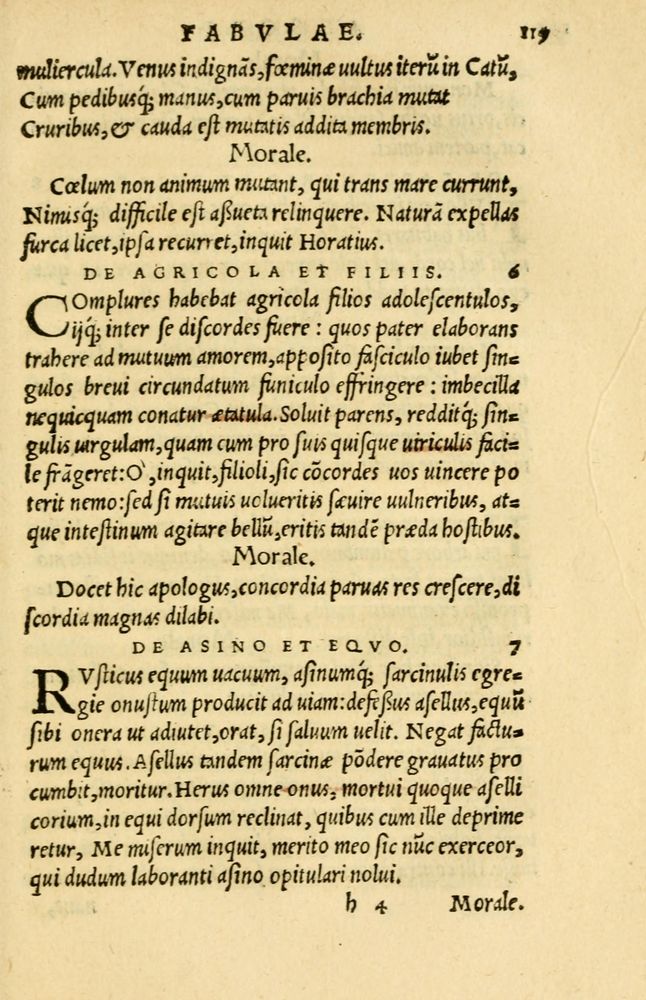 FABVLAE. 119
muliercula. Venus indignãs, fœminæ uultus iterũ in Catũ,
Cum pedibusq́; manus, cum paruis brachia mutat
Cruribus, & cauda est mutatis addita membris.
Morale.
Cœlum non animum mutant, qui trans mare currunt,
Nimusq́; difficile est aßueta relinquere. Naturã expellas
furca licet, ipsa recurret, inquit Horatius.
DE AGRICOLA ET FILIIS. 6
COmplures habebat agricola filios adolescentulos,
ijq́; inter se discordes fuere : quos pater elaborans
trahere ad mutuum amorem, apposito fasciculo iubet sin=
gulos breui circundatum funiculo effringere : imbecilla
nequicquam conatur ætatula. Soluit parens, redditq́; sin=
gulis uirgulam, quam cum pro suis quisque uiriculis faci=
le frãgeret: O`, inquit, filioli, sic cõcordes uos uincere po
terit nemo: sed si mutuis uolueritis sæuire uulneribus, at=
que intestinum agitare bellũ, eritis tandẽ præda hostibus.
Morale.
Docet hic apologus, concordia paruas res crescere, di
scordia magnas dilabi.
DE ASINO ET EQVO. 7
RVsticus equum uacuum, asinumq́; sarcinulis egre=
gie onustum producit ad uiam: defeßus asellus, equũ
sibi onera ut adiutet, orat, si saluum uelit. Negat factu=
rum equus. Asellus tandem sarcinæ põdere grauatus pro
cumbit, moritur. Herus omne onus, mortui quoque aselli
corium, in equi dorsum reclinat, quibus cum ille deprime
retur, Me miserum inquit, merito meo sic nũc exerceor,
qui dudum laboranti asino opitulari nolui.
h 4 Morale.